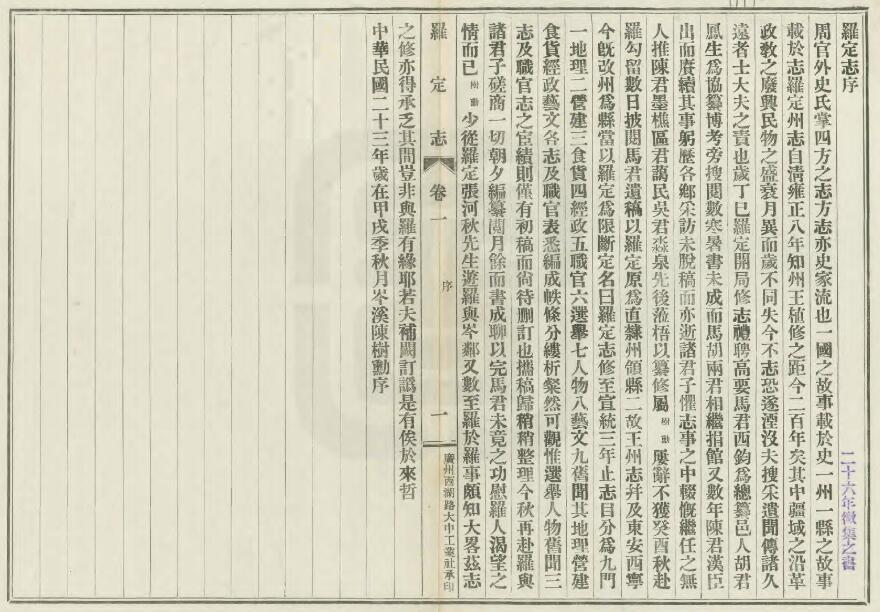 羅定志序
周官外史氏掌四方之志方志亦史家流也一國之故事載於史一州一縣之故事
載於志羅定州志自清雍正八年知州王植修之距今二百年矣其中疆域之沿革
政教之廢興民物之盛衰月異而歲不同失今不志恐遂湮沒夫搜采遺聞傳諸久
遠者士大夫之責也歲丁巳羅定開局修志禮聘高要馬君西鈞爲總纂邑人胡君
鳳生爲協纂博考旁搜閱數寒暑書未成而馬胡兩君相繼捐館又數年陳君漢臣
出而賡續其事躬歷各鄉采訪未脫稿而亦逝諸君子懼志事之中輟慨繼任之無
人推陳君墨樵區君藹民吳君淼泉先後蒞梧以纂修屬樹勳屢辭不獲癸酉秋赴
羅勾留數日披閱馬君遺稿以羅定原爲直隸州領縣二故王州志幷及東安西寧
今旣改州爲縣當以羅定爲限斷定名曰羅定志修至宣統三年止志目分爲九門
一地理二營建三食貨四經政五職官六選舉七人物八藝文九舊聞其地理營建
食貨經政藝文各志及職官表悉編成帙條分縷析粲然可觀惟選舉人物舊聞三
志及職官志之宦績則僅有初稿而尙待删訂也攜稿歸稍稍整理今秋再赴羅與
諸君子磋商一切朝夕編纂閱月餘而書成聊以完馬君未竟之功慰羅人渴望之
情而已樹勳少從羅定張河秋先生遊羅與岑鄰又數至羅於羅事頗知大畧茲志
羅定志 卷一 序 一 廣州西湖路大中工業社承印
之修亦得承乏其間豈非與羅有緣耶若夫補闕訂譌是有俟於來哲
中華民國二十三年歲在甲戌季秋月岑溪陳樹勳序
二十六年徵集之書